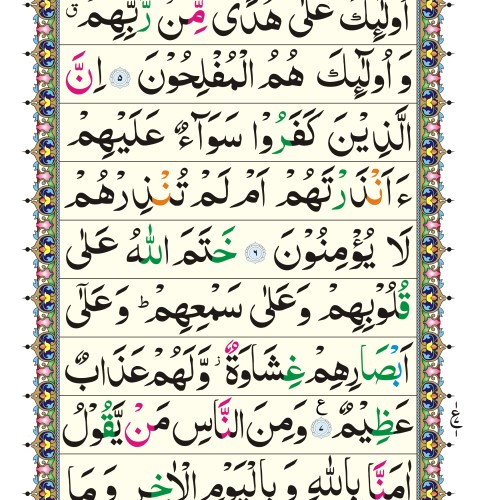 اُولٰٓئِكَ عَلٰى هُدًى مِّنْ رَّبِّهِمْ ۛق
وَ اُولٰٓئِكَ هُمُ الْمُفْلِحُوْنَ ۵ اِنَّ
الَّذِيْنَ كَفَرُوْا سَوَآءٌ عَلَيْهِمْ
ءَاَنْذَرْتَهُمْ اَمْ لَمْ تُنْذِرْهُمْ
لَا يُؤْمِنُوْنَ ۶ خَتَمَ اللّٰهُ عَلٰى
قُلُوْبِهِمْ وَعَلٰى سَمْعِهِمْ ؕ وَعَلٰٓى
اَبْصَارِهِمْ غِشَاوَةٌ ز وَّلَهُمْ عَذَابٌ
عَظِيْمٌ ۷ ع وَمِنَ النَّاسِ مَنْ يَّقُوْلُ
اٰمَنَّا بِاللّٰهِ وَ بِالْيَوْمِ الْاٰخِرِ وَ مَا